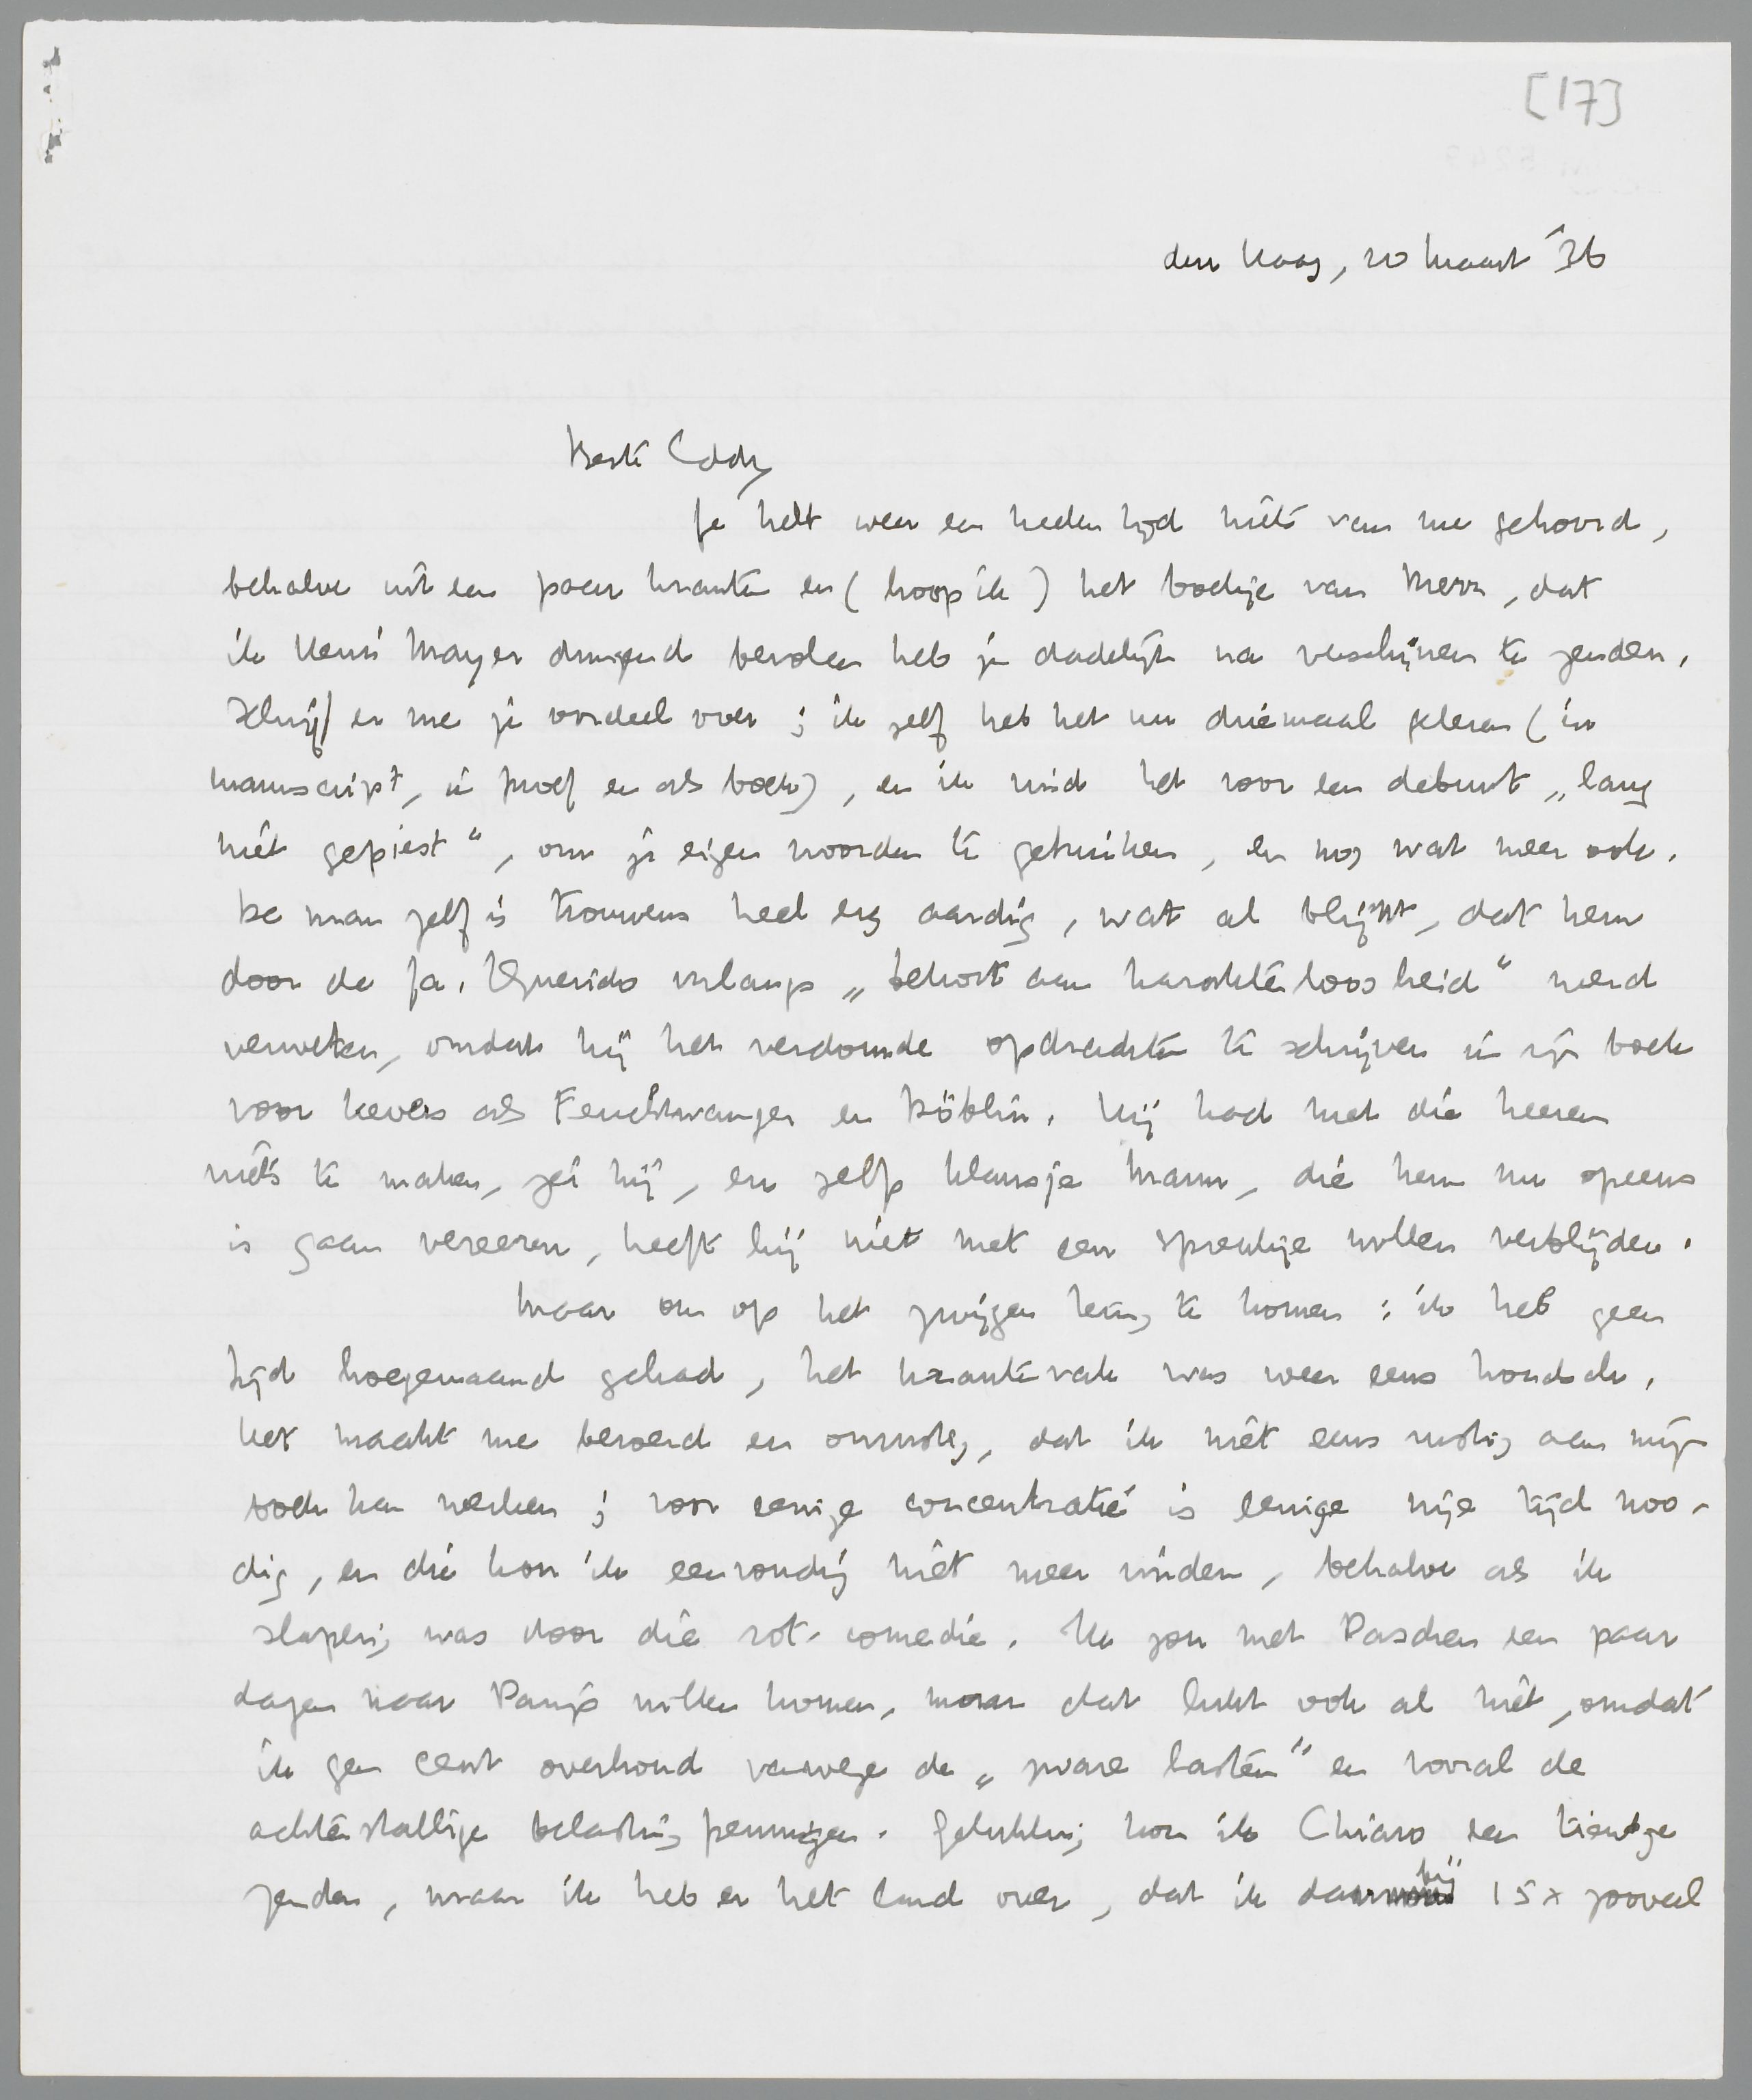 [17]
den Haag, 20 Maart '36
Beste Eddy
Je hebt weer een heelen tijd niets van me gehoord,
behalve uit een paar kranten en (hoop ik) het boekje van Merz, dat
ik Henri Mayer dringend bevolen heb je dadelijk na verschijnen te zenden.
Schrijf er me je oordeel over; ik zelf heb het nu driemaal gelezen (in
manuscript, in proef en als boek), en ik vind het voor een debuut „lang
niet gepiest", om je eigen woorden te gebruiken, en nog wat meer ook.
De man zelf is trouwens heel erg aardig, wat al blijkt, dat hem
door de fa. Querido onlangs „tekort aan karakterloosheid" werd
verweten, omdat hij het verdomde opdrachten te schrijven in zijn boek
voor kevers als Feuchtwanger en Döblin. Hij had met die heeren
niets te maken, zei hij, en zelfs Klausje Mann, die hem nu opeens
is gaan vereeren, heeft hij niet met een spreukje willen verblijden.
Maar om op het zwijgen terug te komen: ik heb geen
tijd hoegenaamd gehad, het krantevak was weer eens hondsch,
het maakt me beroerd en onrustig, dat ik niet eens rustig aan mijn
boek kan werken; voor eenige concentratie is eenige vrije tijd noo-
dig, en die kon ik eenvoudig niet meer vinden, behalve als ik
slaperig was door die rot-comedie. Ik zou met Paschen een paar
dagen naar Parijs willen komen, maar dat lukt ook al niet, omdat
ik geen cent overhoud vanwege de „zware lasten" en vooral de
achterstallige belastingpenningen. Gelukkig kon ik Chiaro een tientje
zenden, maar ik heb er het land over, dat ik daarbij 15x zooveel